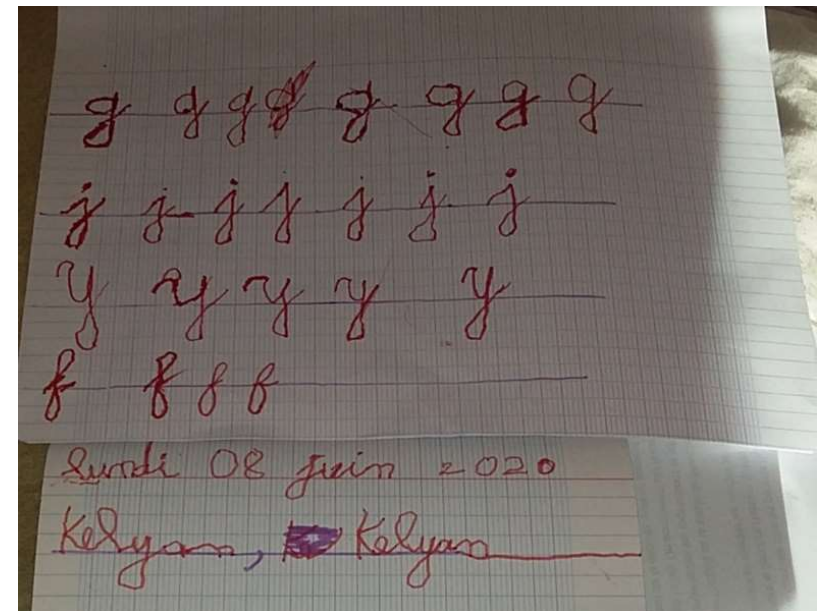 g g g g g g g g
j j j j j j j
y y y y y
f f f f
Lundi 08 juin 2020
Kelyan, Kelyan